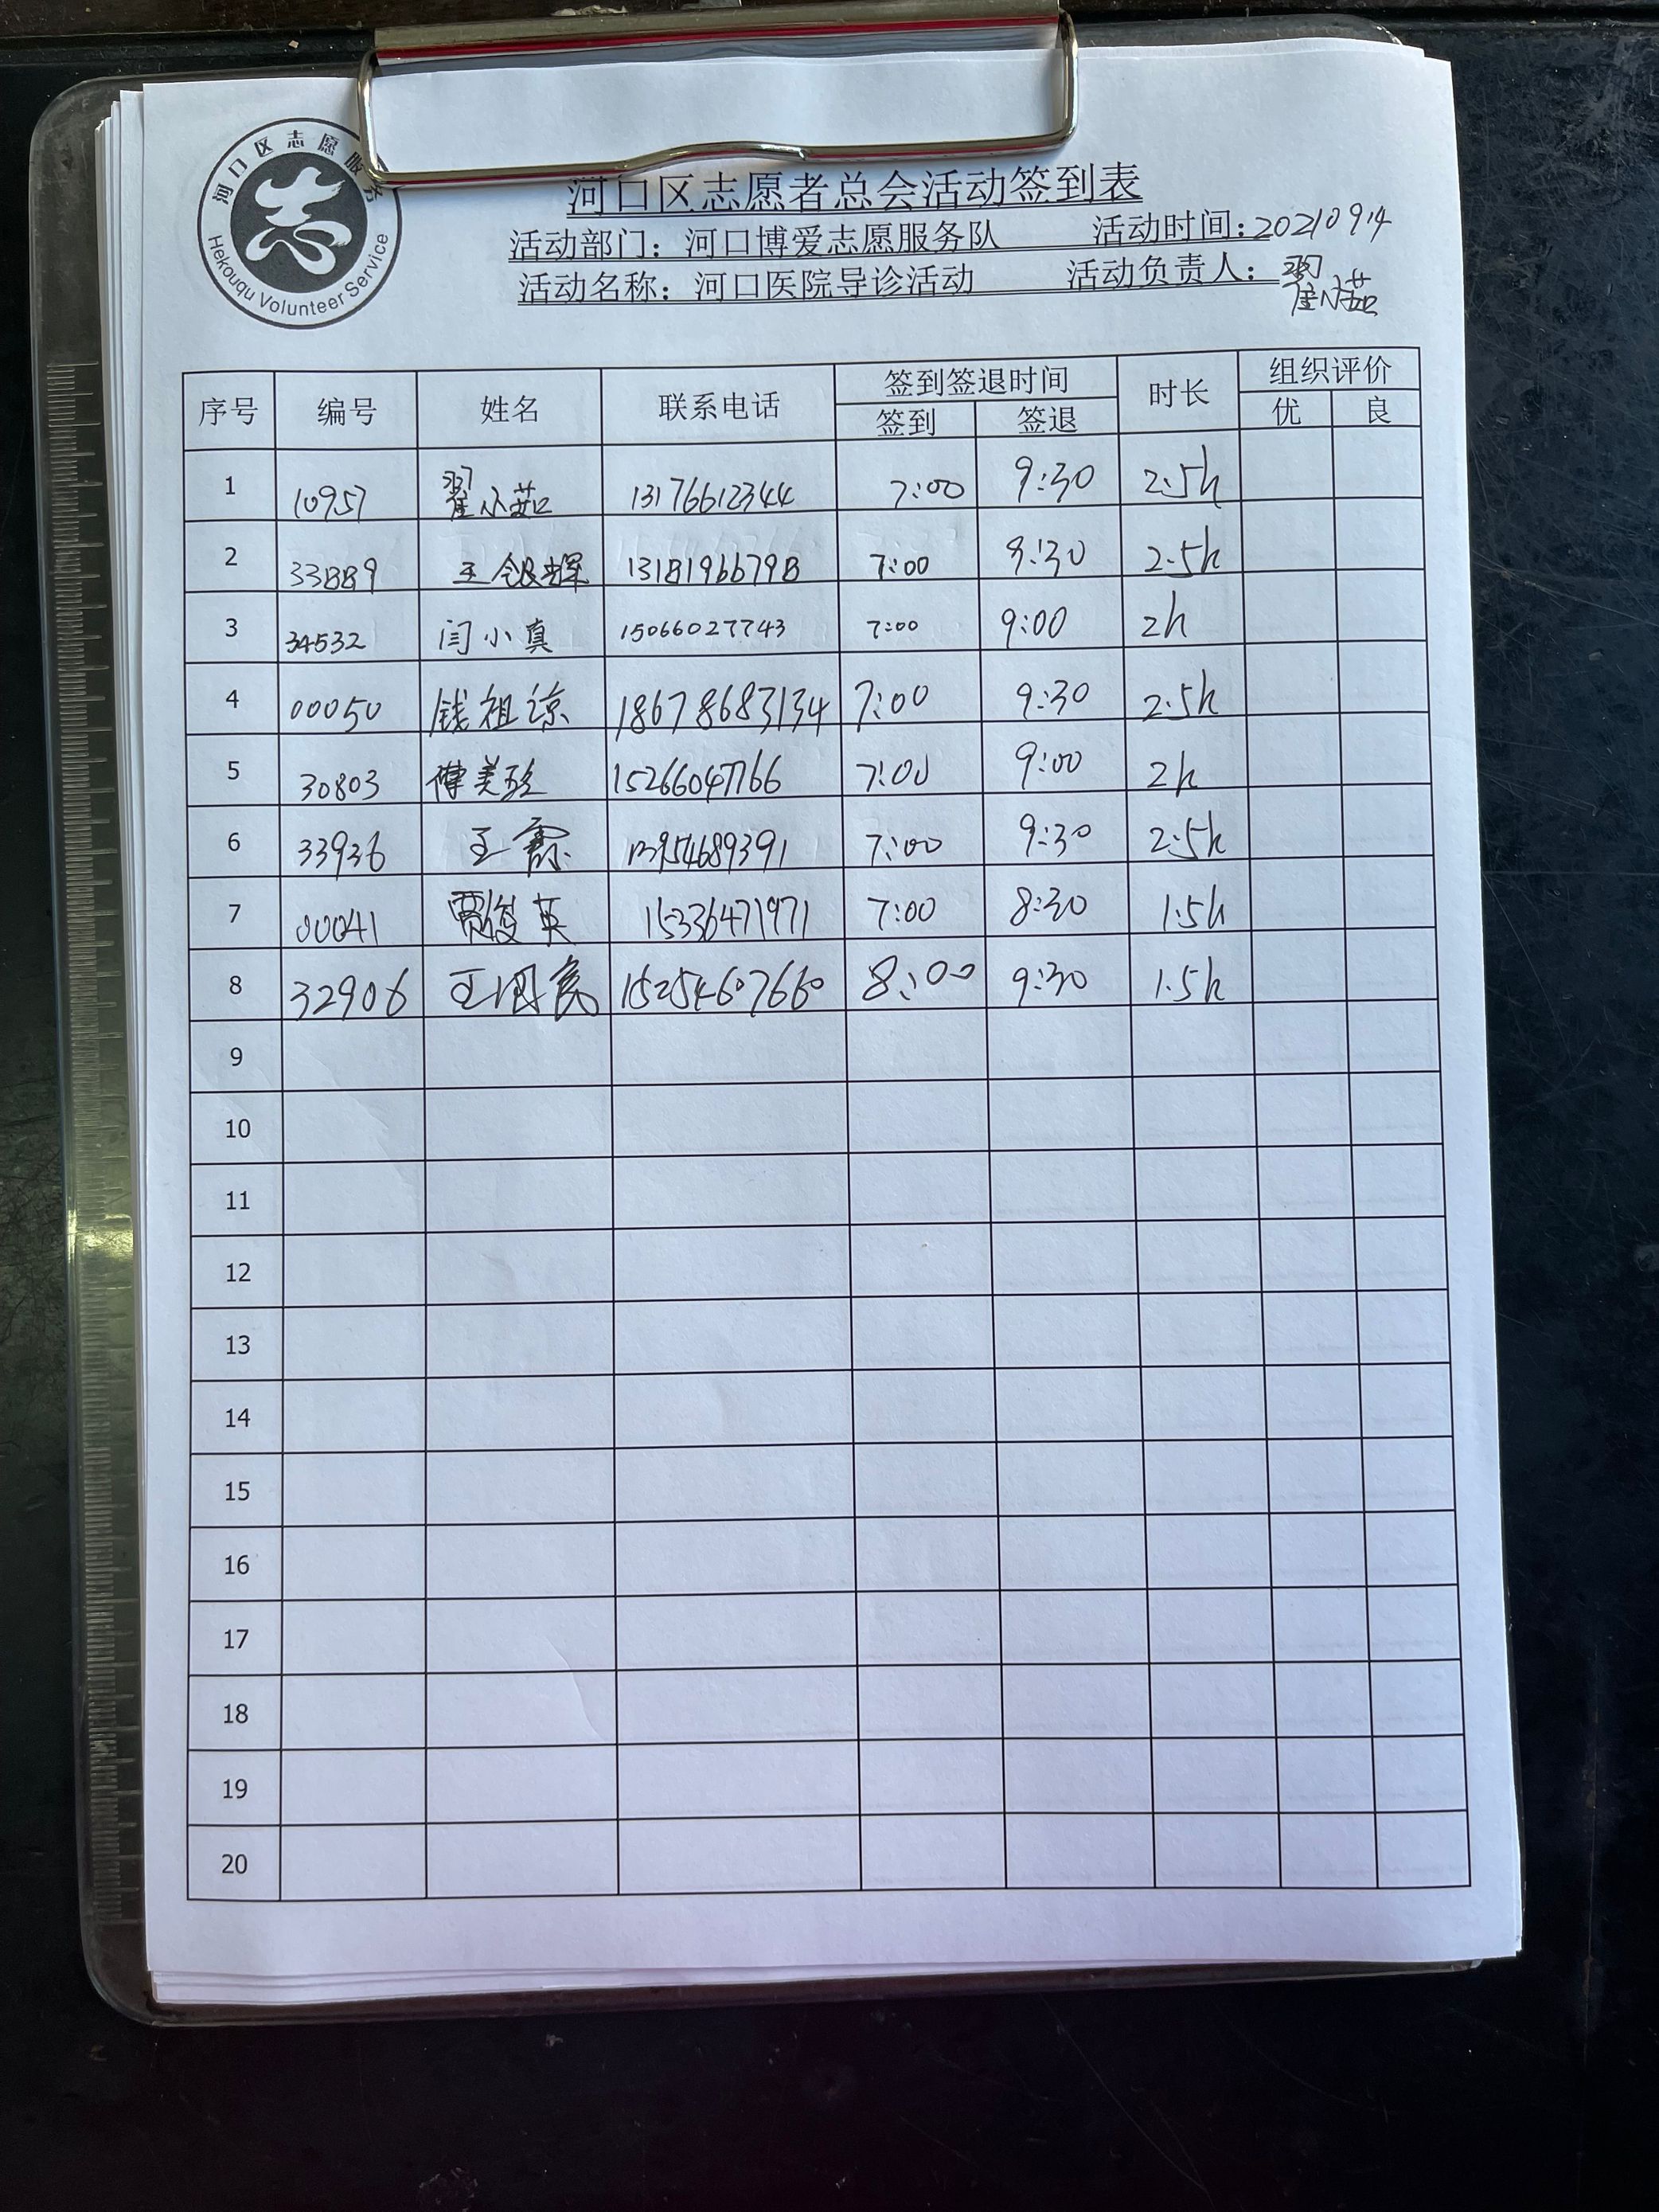 河口区志愿服务
Hekouqu Volunteer Service
河口区志愿者总会活动签到表
活动部门：河口博爱志愿服务队 活动时间：20210914
活动名称：河口医院导诊活动 活动负责人：翟小茹
序号 编号 姓名 联系电话 签到签退时间 时长 组织评价
签到 签退 优 良
1 10957 翟小茹 13176612344 7:00 9:30 2.5h
2 33889 王银辉 13181966798 7:00 9:30 2.5h
3 34532 闫小真 15066027743 7:00 9:00 2h
4 00050 钱祖谅 18678683134 7:00 9:30 2.5h
5 30803 傅美 15266047766 7:00 9:00 2h
6 33936 王 13954689391 7:00 9:30 2.5h
7 00041 贾俊英 15336471971 7:00 8:30 1.5h
8 32906 王 15254607660 8:00 9:30 1.5h
9
10
11
12
13
14
15
16
17
18
19
20